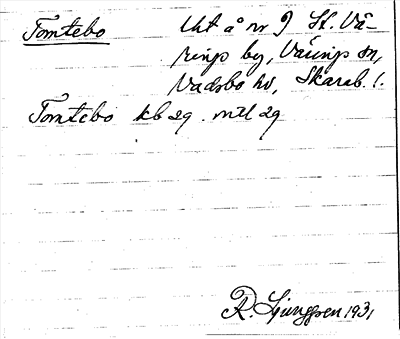 Tomtebo Uht å nr 9 St. Vä-
rings by, Värings sn,
Vadsbo hd, Skarab. l.
Tomtebo kb 29. mtl 29
R. Ljunggren 1931